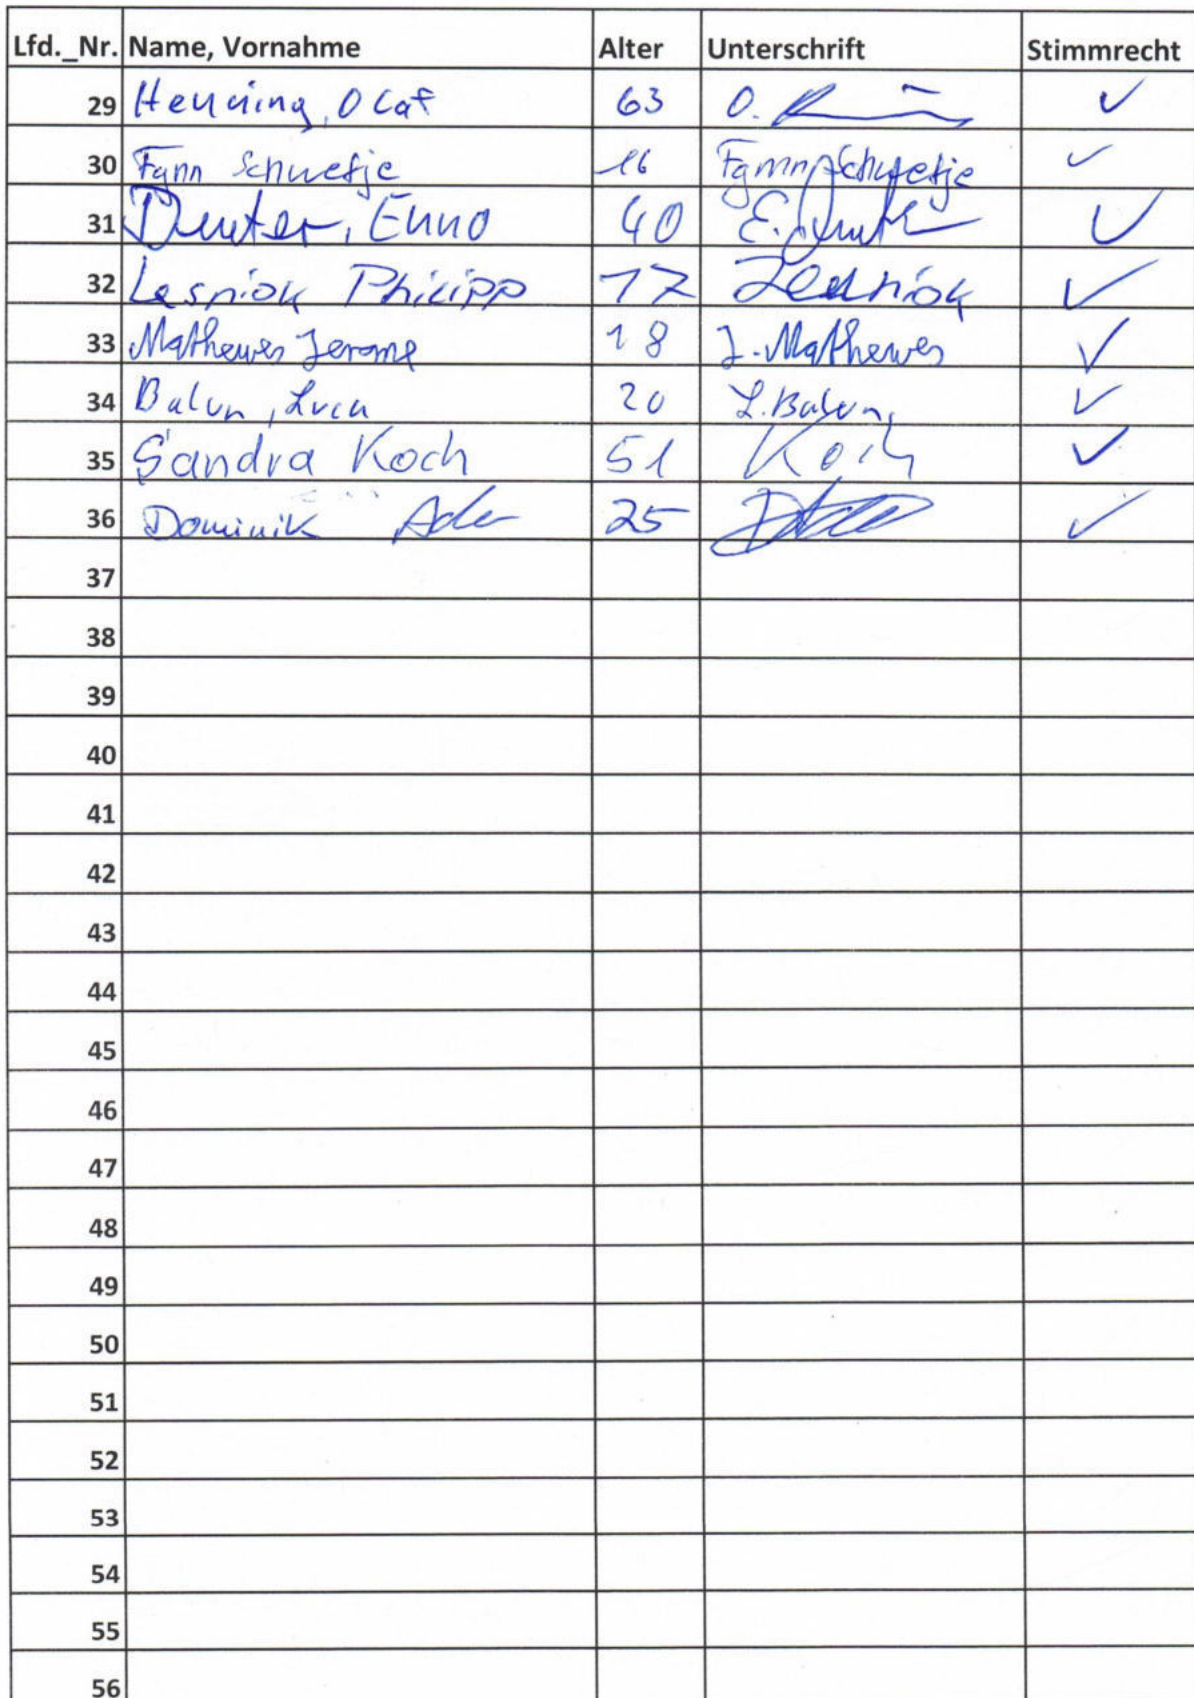 Lfd._Nr. Name, Vornahme Alter Unterschrift Stimmrecht
29 Henning, Olaf 63 O. ✓
30 Fynn Schwetje 16 Fynn Schwetje ✓
31 Deuter, Enno 40 E. ✓
32 Lesniok Philipp 17 Lesniok ✓
33 Mathewes Jerome 18 J. Mathewes ✓
34 Balun, Luca 20 L. Balun ✓
35 Sandra Koch 51 Koch ✓
36 Dominik 25 ✓
37
38
39
40
41
42
43
44
45
46
47
48
49
50
51
52
53
54
55
56